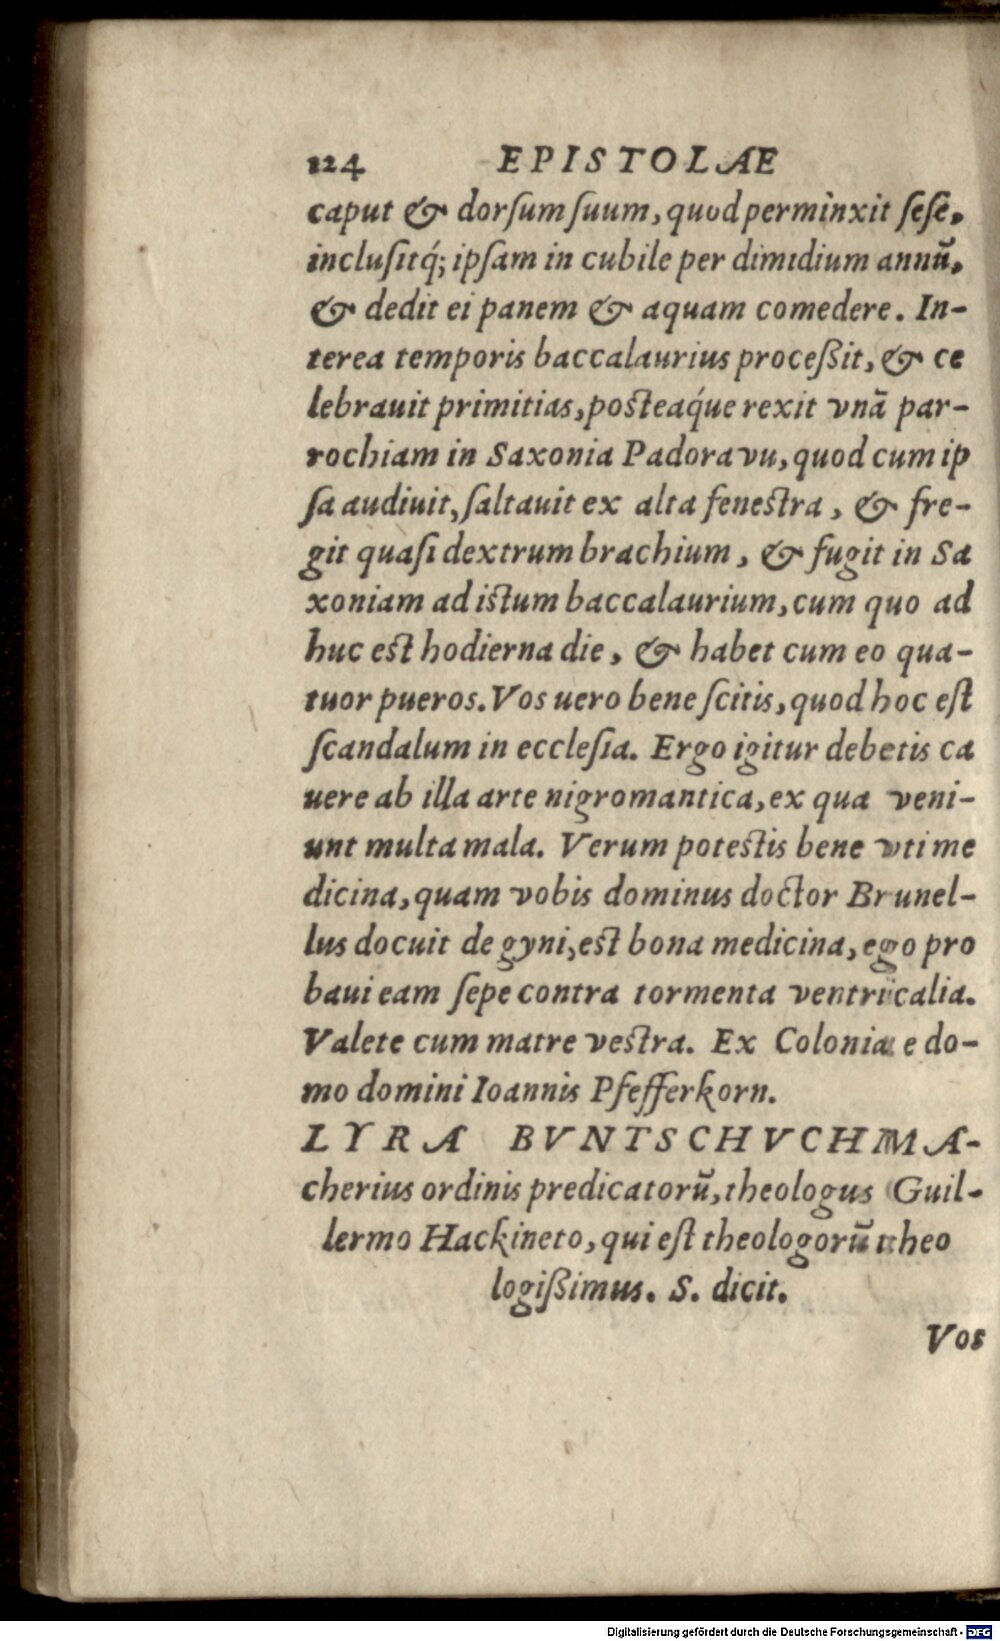 124 EPISTOLAE
caput & dorſum ſuum, quod perminxit ſeſe,
incluſitq́; ipſam in cubile per dimidium annũ,
& dedit ei panem & aquam comedere. In-
terea temporis baccalaurius proceßit, & ce
lebrauit primitias, poſteaq́ue rexit vnã par-
rochiam in Saxonia Padorauu, quod cum ip
ſa audiuit, ſaltauit ex alta feneſtra, & fre-
git quaſi dextrum brachium, & fugit in Sa
xoniam ad iſtum baccalaurium, cum quo ad
huc eſt hodierna die, & habet cum eo qua-
tuor pueros. Vos uero bene ſcitis, quod hoc eſt
ſcandalum in eccleſia. Ergo igitur debetis ca
uere ab illa arte nigromantica, ex qua veni-
unt multa mala. Verum poteſtis bene vti me
dicina, quam vobis dominus doctor Brunel-
lus docuit de gyni, eſt bona medicina, ego pro
baui eam ſepe contra tormenta ventricalia.
Valete cum matre veſtra. Ex Colonia e do-
mo domini Ioannis Pfefferkorn.
LYRA BVNTSCHVCHMA-
cherius ordinis predicatorũ, theologus Guil-
lermo Hackineto, qui eſt theologorũ theo
logißimus. S. dicit.
Vos
Digitalisierung gefördert durch die Deutsche Forschungsgemeinschaft - DFG